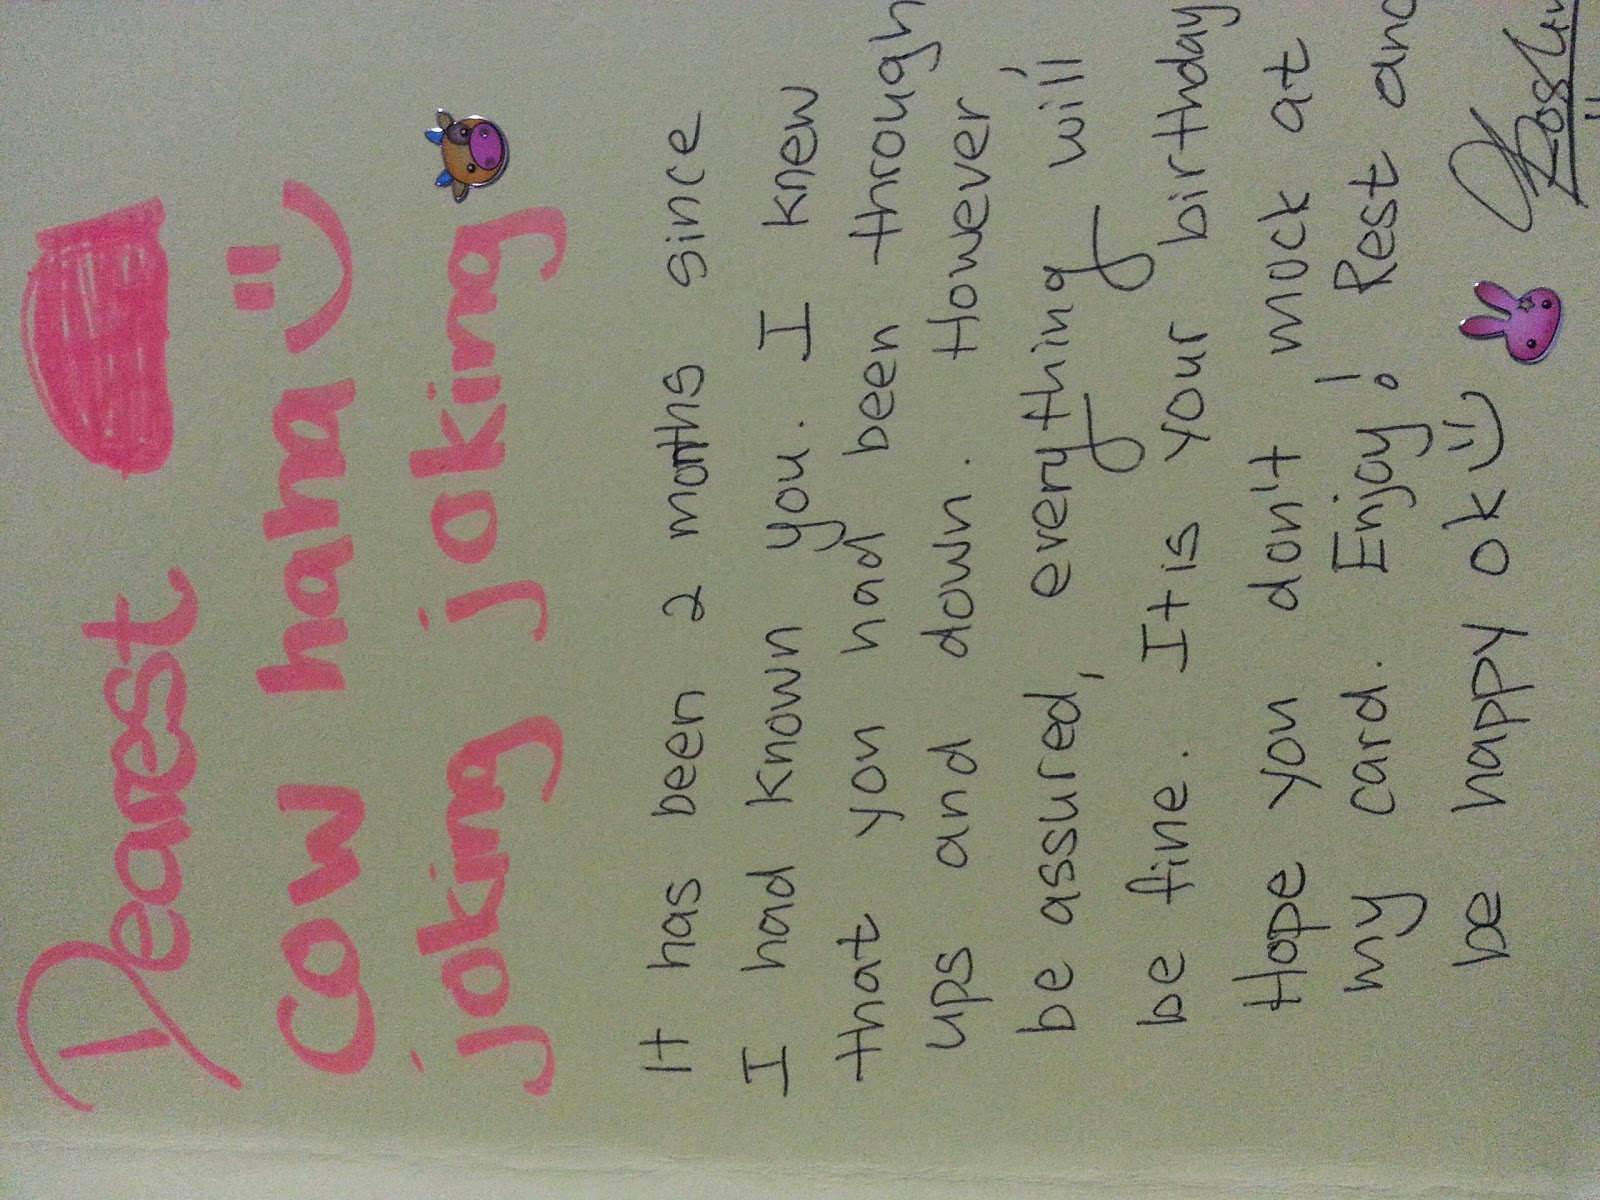 Dearest
Cow haha
joking joking
It has been 2 months since
I had known you. I knew
that you had been through
ups and down. However,
be assured, everything will
be fine. It is your birthday
Hope you don't mock at
my card. Enjoy! Rest and
be happy ok